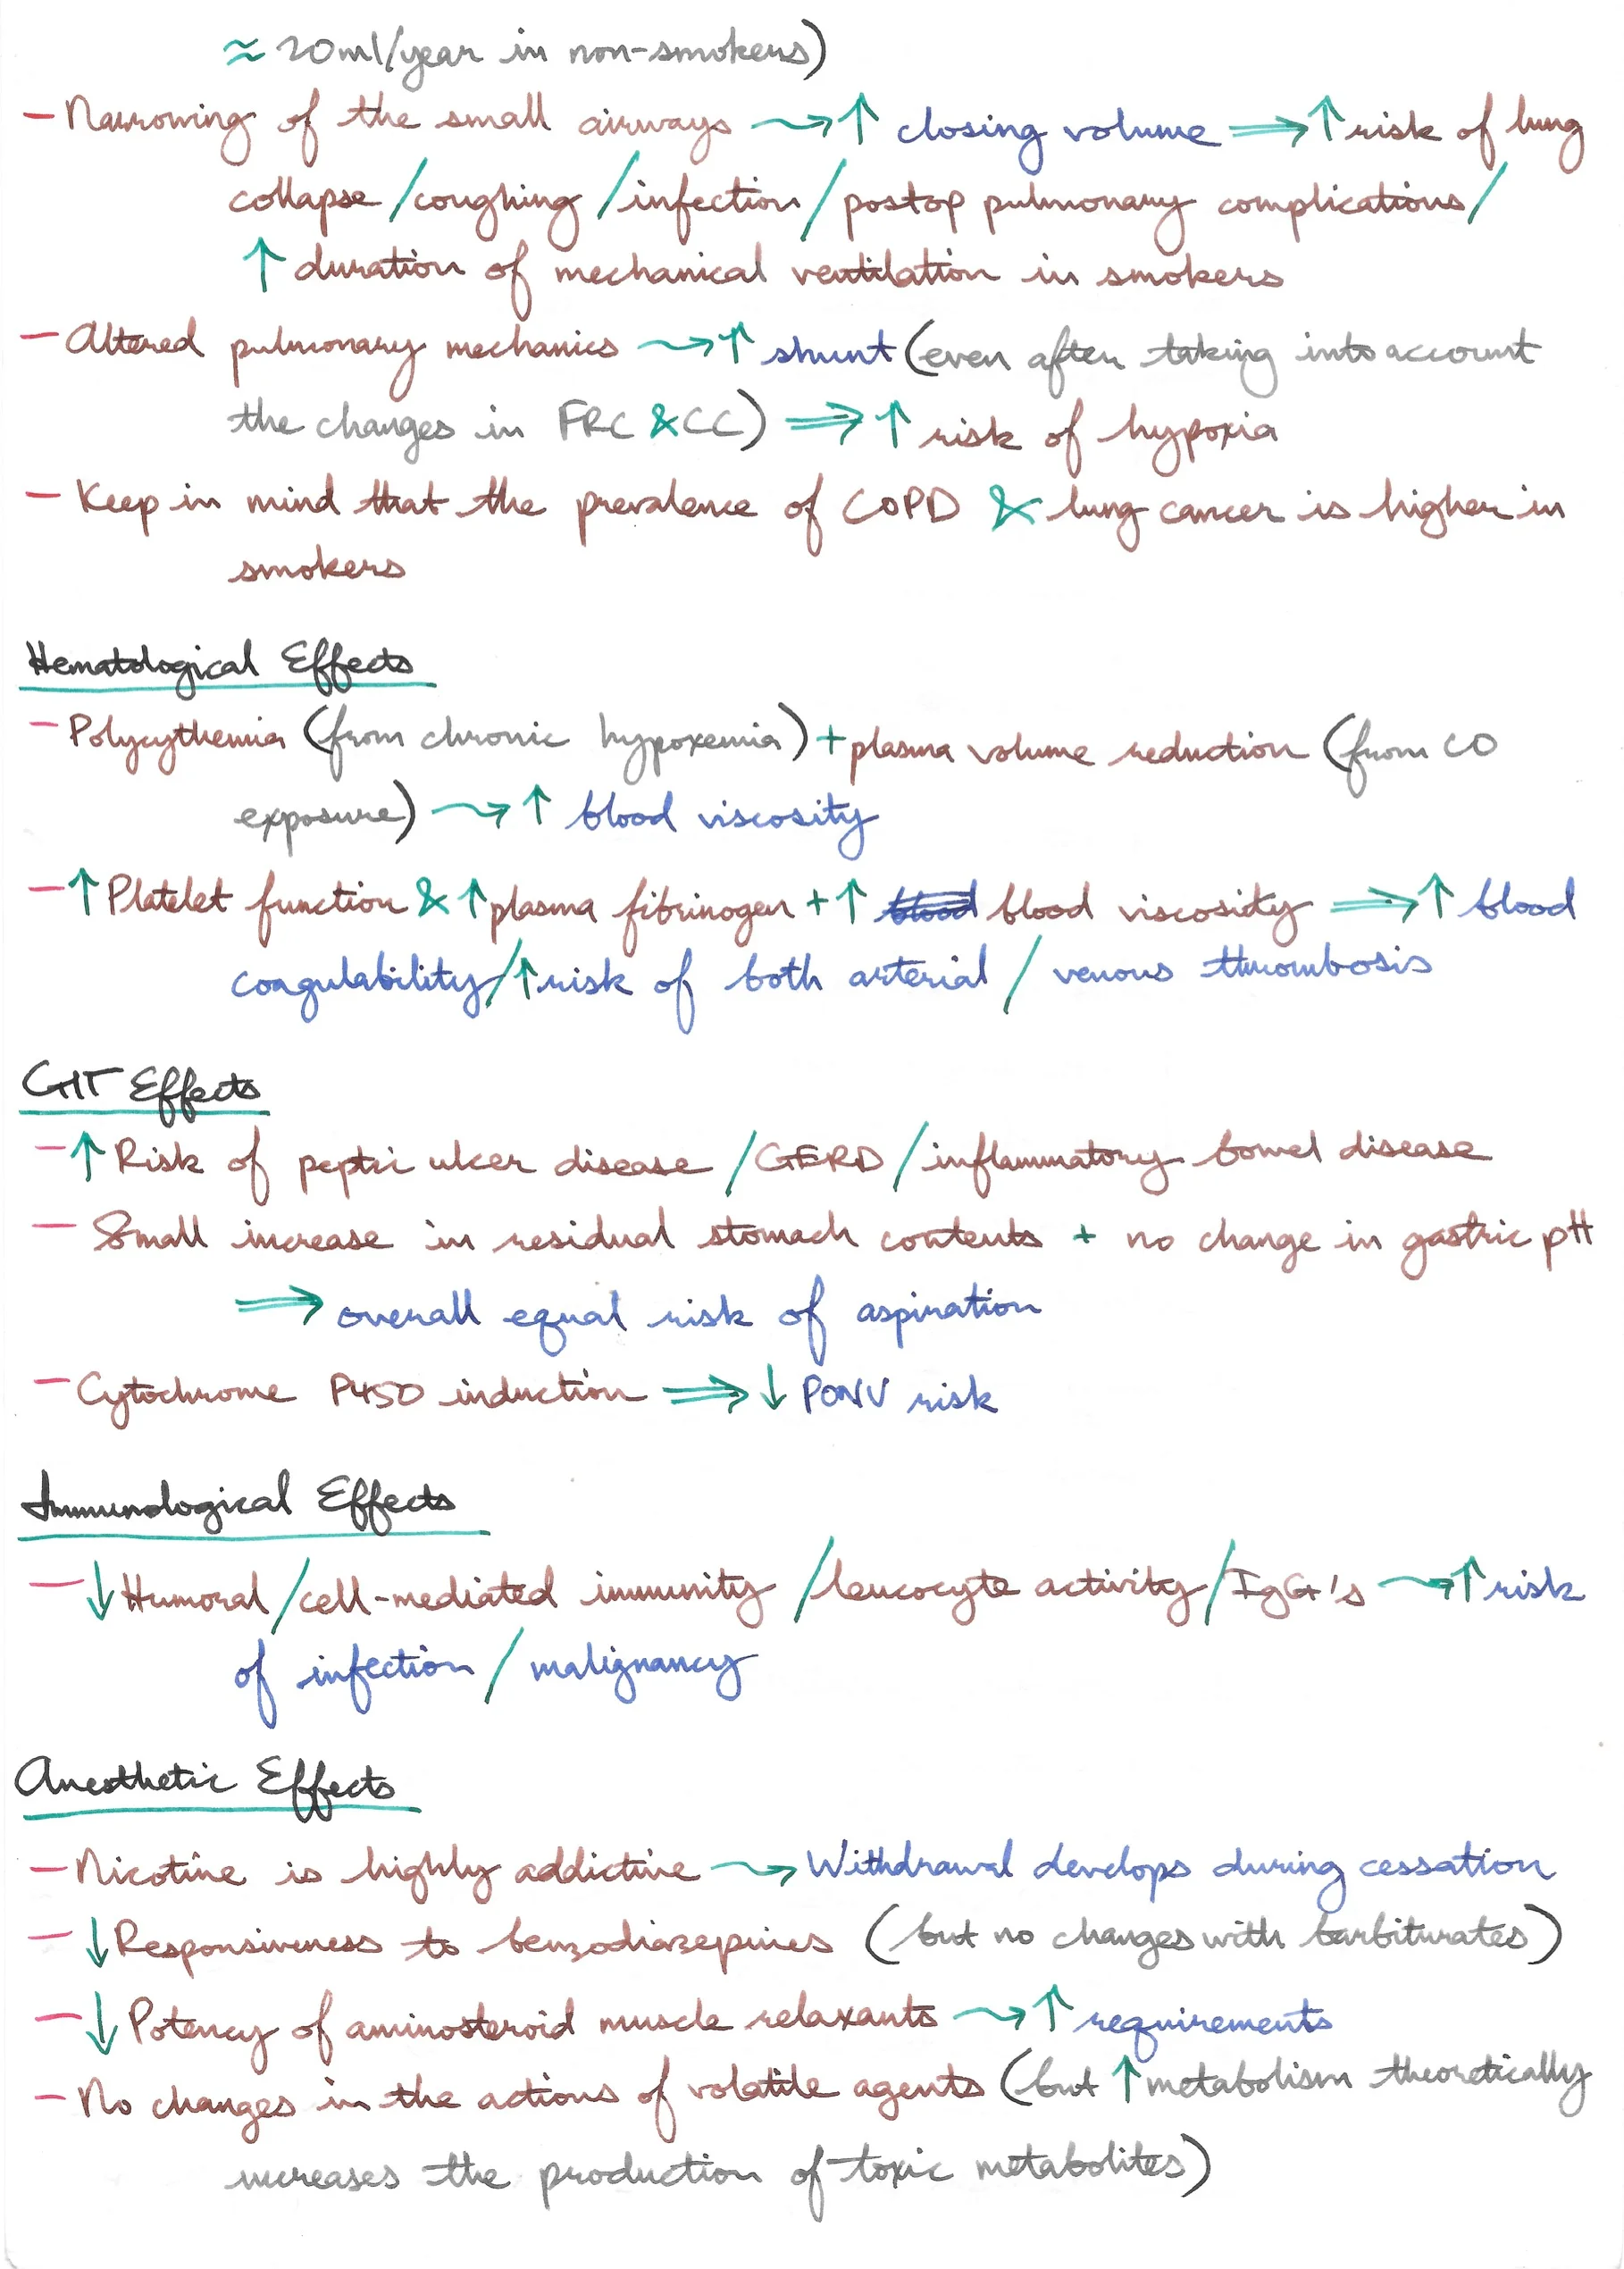 ≈ 20ml/year in non-smokers)
— Narrowing of the small airways ⇝ ↑ closing volume ⇒ ↑ risk of lung
collapse / coughing / infection / postop pulmonary complications /
↑ duration of mechanical ventilation in smokers
— Altered pulmonary mechanics ⇝ ↑ shunt (even after taking into account
the changes in FRC & CC) ⇒ ↑ risk of hypoxia
— Keep in mind that the prevalence of COPD & lung cancer is higher in
smokers
Hematological Effects
— Polycythemia (from chronic hypoxemia) + plasma volume reduction (from CO
exposure) ⇝ ↑ blood viscosity
— ↑ Platelet function & ↑ plasma fibrinogen + ↑ blood viscosity ⇒ ↑ blood
coagulability / ↑ risk of both arterial / venous thrombosis
GIT Effects
— ↑ Risk of peptic ulcer disease / GERD / inflammatory bowel disease
— Small increase in residual stomach contents + no change in gastric pH
⇒ overall equal risk of aspiration
— Cytochrome P450 induction ⇒ ↓ PONV risk
Immunological Effects
— ↓ Humoral / cell-mediated immunity / leucocyte activity / IgG's ⇝ ↑ risk
of infection / malignancy
Anesthetic Effects
— Nicotine is highly addictive ⇝ Withdrawal develops during cessation
— ↓ Responsiveness to benzodiazepines (but no changes with barbiturates)
— ↓ Potency of aminosteroid muscle relaxants ⇝ ↑ requirements
— No changes in the actions of volatile agents (but ↑ metabolism theoretically
increases the production of toxic metabolites)